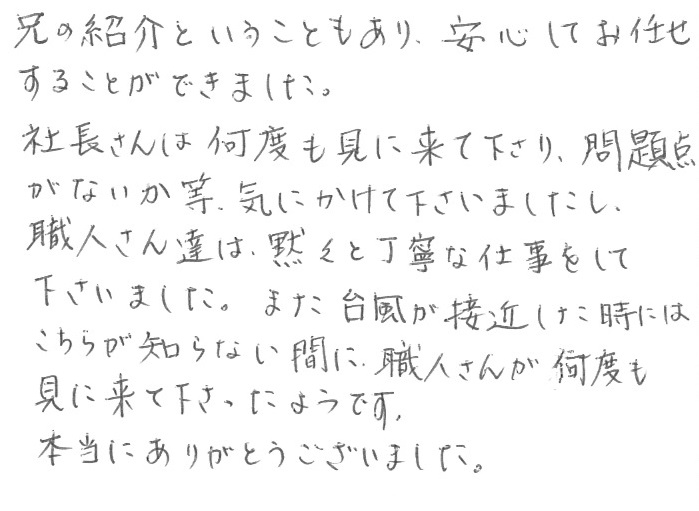 兄の紹介ということもあり、安心してお任せ
することができました。
社長さんは何度も見に来て下さり、問題点
がないか等、気にかけて下さいましたし、
職人さん達は、黙々と丁寧な仕事をして
下さいました。また台風が接近した時には
こちらが知らない間に、職人さんが何度も
見に来て下さったようです。
本当にありがとうございました。